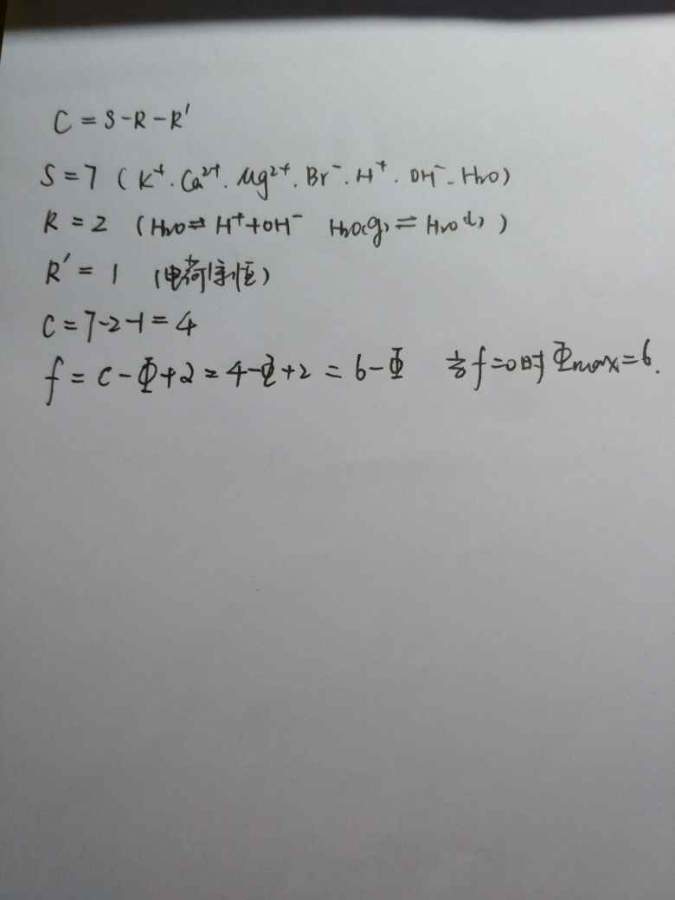 C = S-R-R'
S = 7 (K⁺. Ca²⁺. Mg²⁺. Br⁻. H⁺. OH⁻. H₂O)
R = 2 (H₂O⇌H⁺+OH⁻ H₂O(g)⇌H₂O(l))
R' = 1 (电荷守恒)
C = 7-2-1 = 4
f = C-Φ+2 = 4-Φ+2 = 6-Φ 当f=0时Φmax=6.